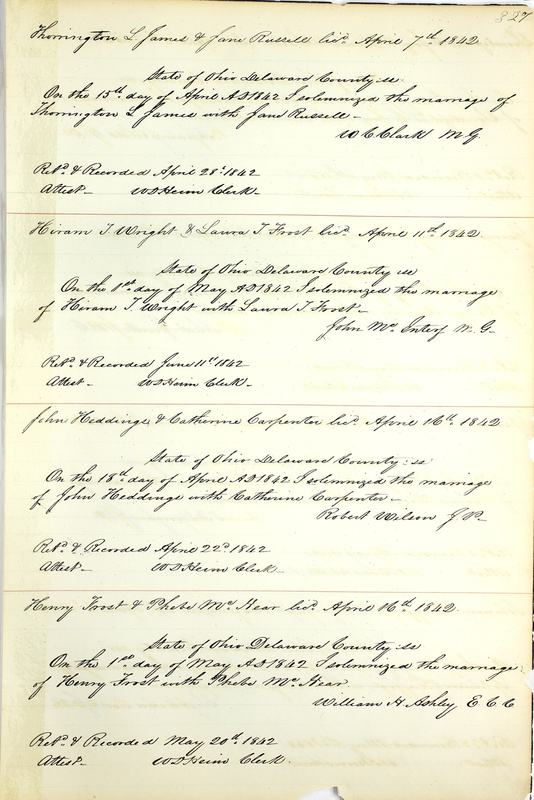 327
Thorrington L James & Jane Russell licd. April 7th. 1842
State of Ohio Delaware County ss
On the 15th. day of April AD 1842 I solemnized the marriage of
Thorrington L James with Jane Russell-
W C Clark M G
Retd. & Recorded April 28th. 1842
Attest- W D Heim Clerk-
Hiram T Wright & Laura T Frost licd. April 11th. 1842.
State of Ohio Delaware County ss
On the 1st. day of May AD 1842 I solemnized the marriage
of Hiram T. Wright with Laura T. Frost-
John Mc. M. G-
Retd. & Recorded June 11th. 1842
Attest- W D Heim Clerk-
John Heddings & Catherine Carpenter licd. April 16th. 1842
State of Ohio Delaware County: ss
On the 18th. day of April AD 1842 I solemnized the marriage
of John Heddings with Catherine Carpenter-
Robert Wilson J. P-
Retd. & Recorded April 22d. 1842
Attest- W D Heim Clerk-
Henry Frost & Phebe Mc. Hear licd. April 16th. 1842.
State of Ohio Delaware County: ss
On the 1st. day of May AD 1842 I solemnized the marriage
of Henry Frost with Phebe Mc. Hear
William H Ashley E. C C
Retd. & Recorded May 20th. 1842
Attest- W D Heim Clerk.